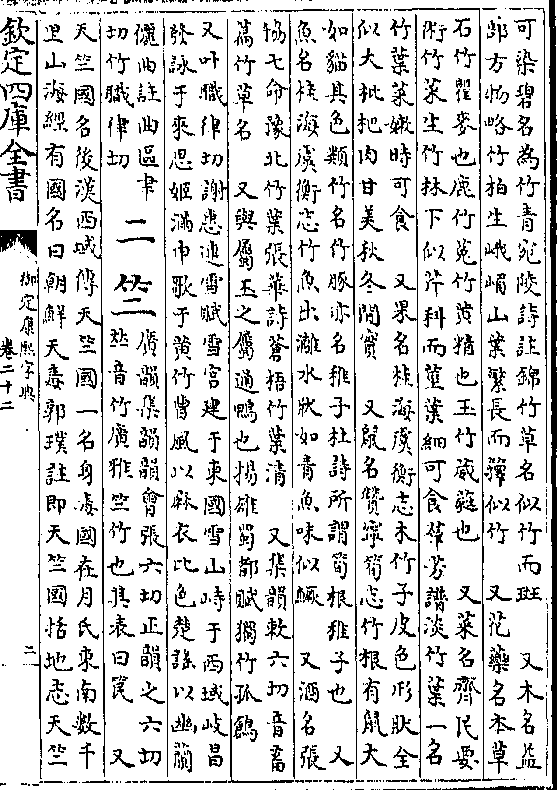 可染碧名為竹青宛陵詩註錦竹草名似竹而斑　又木名益
部方物略竹柏生峨嵋山葉繁長而籜似竹　又花藥名本草
石竹瞿麥也鹿竹菟竹黄精也玉竹葳蕤也　又菜名齊民要
術竹菜生竹林下似芹科而莖葉細可食羣芳譜淡竹葉一名
竹葉菜嫩時可食　又果名桂海虞衡志木竹子皮色形狀全
似大枇杷肉甘美秋冬間實　又鼠名贊寧筍志竹根有鼠大
如貓其色類竹名竹豚亦名稚子杜詩所謂筍根稚子也　又
魚名桂海虞衡志竹魚出灕水狀如青魚味似鱖　又酒名張
協七命豫北竹葉張華詩蒼梧竹葉清　又集韻敕六切音畜
萹竹草名　又與屬玉之屬通鴨也揚雄蜀都賦獨竹孤鶬
又叶職律切謝惠連雪賦雪宮建于東國雪山峙于西域岐昌
發詠于來思姬滿申歌于黄竹曹風以麻衣比色楚謡以幽蘭
儷曲註曲區聿
切竹職律切
二 竺
廣韻集韻韻會張六切正韻之六切
𠀤音竹廣雅竺竹也其表曰笢　又
天竺國名後漢西域傳天竺國一名身毒國在月氏東南數千
里山海經有國名曰朝鮮天毒郭璞註即天竺國括地志天竺
欽定四庫全書
御定康熙字典
卷二十二
二